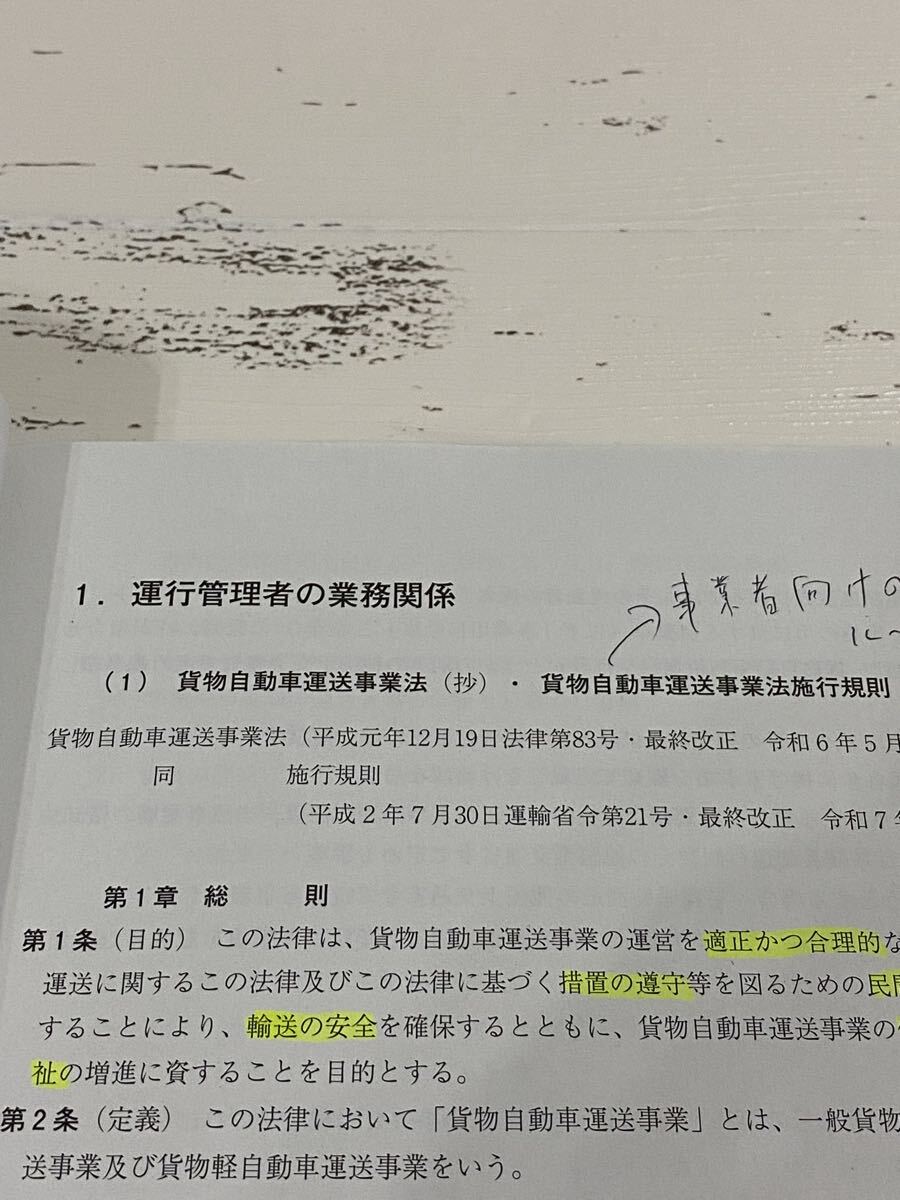 1. 運行管理者の業務関係
事業者向けの
に〜
(1) 貨物自動車運送事業法(抄)・貨物自動車運送事業法施行規則
貨物自動車運送事業法(平成元年12月19日法律第83号・最終改正 令和6年5月
同 施行規則
(平成2年7月30日運輸省令第21号・最終改正 令和7年
第1章 総 則
第1条(目的) この法律は、貨物自動車運送事業の運営を適正かつ合理的な
運送に関するこの法律及びこの法律に基づく措置の遵守等を図るための民間
することにより、輸送の安全を確保するとともに、貨物自動車運送事業の
祉の増進に資することを目的とする。
第2条(定義) この法律において「貨物自動車運送事業」とは、一般貨物
送事業及び貨物軽自動車運送事業をいう。